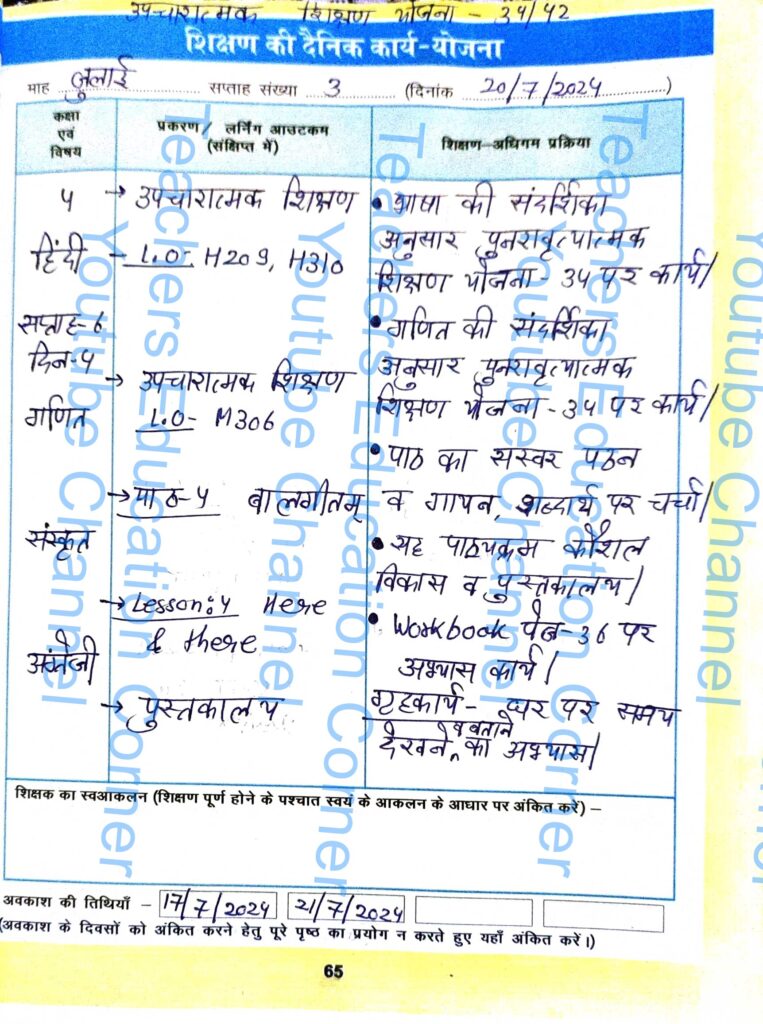 उपचारात्मक शिक्षण योजना - 34/42
शिक्षण की दैनिक कार्य-योजना
माह जुलाई सप्ताह संख्या 3 (दिनांक 20/7/2024)
कक्षा एवं विषय
प्रकरण / लर्निंग आउटकम (संक्षिप्त में)
शिक्षण-अधिगम प्रक्रिया
५
हिंदी
सप्ताह-6
दिन-५
गणित
संस्कृत
अंग्रेजी
→ उपचारात्मक शिक्षण
- L.O- H209, H310
→ उपचारात्मक शिक्षण
L.O- M306
→ पाठ-५ बालगीतम्
→ Lesson:4 Here
& there
→ पुस्तकालय
• भाषा की संदर्शिका
अनुसार पुनरावृत्यात्मक
शिक्षण योजना- 34 पर कार्य।
• गणित की संदर्शिका
अनुसार पुनरावृत्यात्मक
शिक्षण योजना - 34 पर कार्य।
• पाठ का सस्वर पठन
व गायन, शब्दार्थ पर चर्चा।
• सह पाठ्यक्रम कौशल
विकास व पुस्तकालय।
• Workbook पेज-36 पर
अभ्यास कार्य।
गृहकार्य- घर पर समय
देखने व बताने का अभ्यास।
शिक्षक का स्वआकलन (शिक्षण पूर्ण होने के पश्चात स्वयं के आकलन के आधार पर अंकित करें) –
अवकाश की तिथियाँ – 17/7/2024 21/7/2024
(अवकाश के दिवसों को अंकित करने हेतु पूरे पृष्ठ का प्रयोग न करते हुए यहाँ अंकित करें।)
65
Teachers Education Corner
Youtube Channel
Teachers Education Corner
Youtube Channel
Teachers Education Corner
Youtube Channel